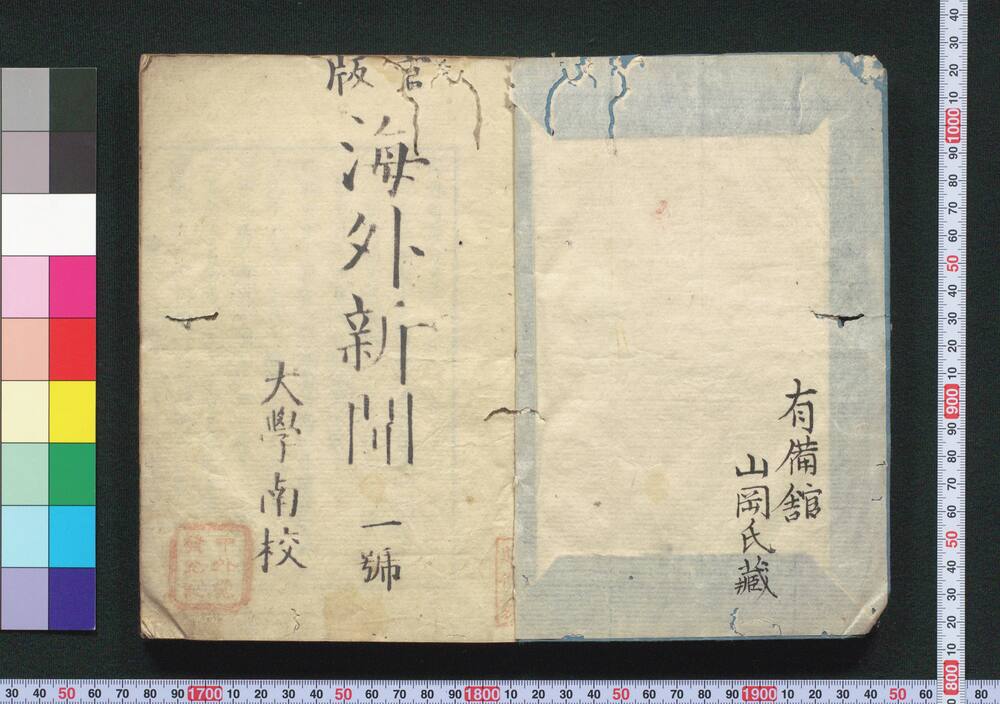 有備舘
山岡氏藏
官版
海外新聞 一號
大學南校
30 40 50 60 70 80 90 1700 10 20 30 40 50 60 70 80 90 1800 10 20 30 40 50 60 70 80 90 1900 10 20 30 40 50 60 80
800 10 20 30 40 50 60 70 80 90 900 10 20 30 40 50 60 70 80 90 1000 10 20 30 40